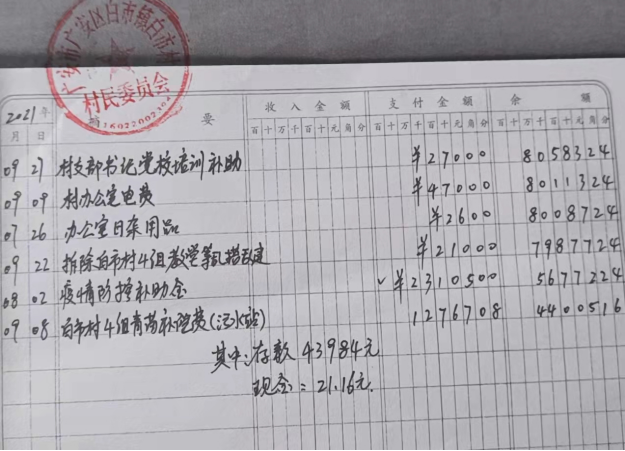 广安市广安区白市镇白市村
村民委员会
2021年
月 日 摘 要 收入金额 支付金额 余 额
百十万千百十元角分 百十万千百十元角分 百十万千百十元角分
09 27 村支部书记党校培训补助 ¥27000 8058324
09 09 村办公室电费 ¥47000 8011324
07 26 办公室日杂用品 ¥2600 8008724
09 22 拆除白市村4组教堂等乱搭乱建 ¥21000 7987724
08 02 疫情防控补助金 ¥2310500 5677224
09 08 白市村4组青苗补偿费(污水站) 1276708 4400516
其中:存款43984元
现金:21.16元.